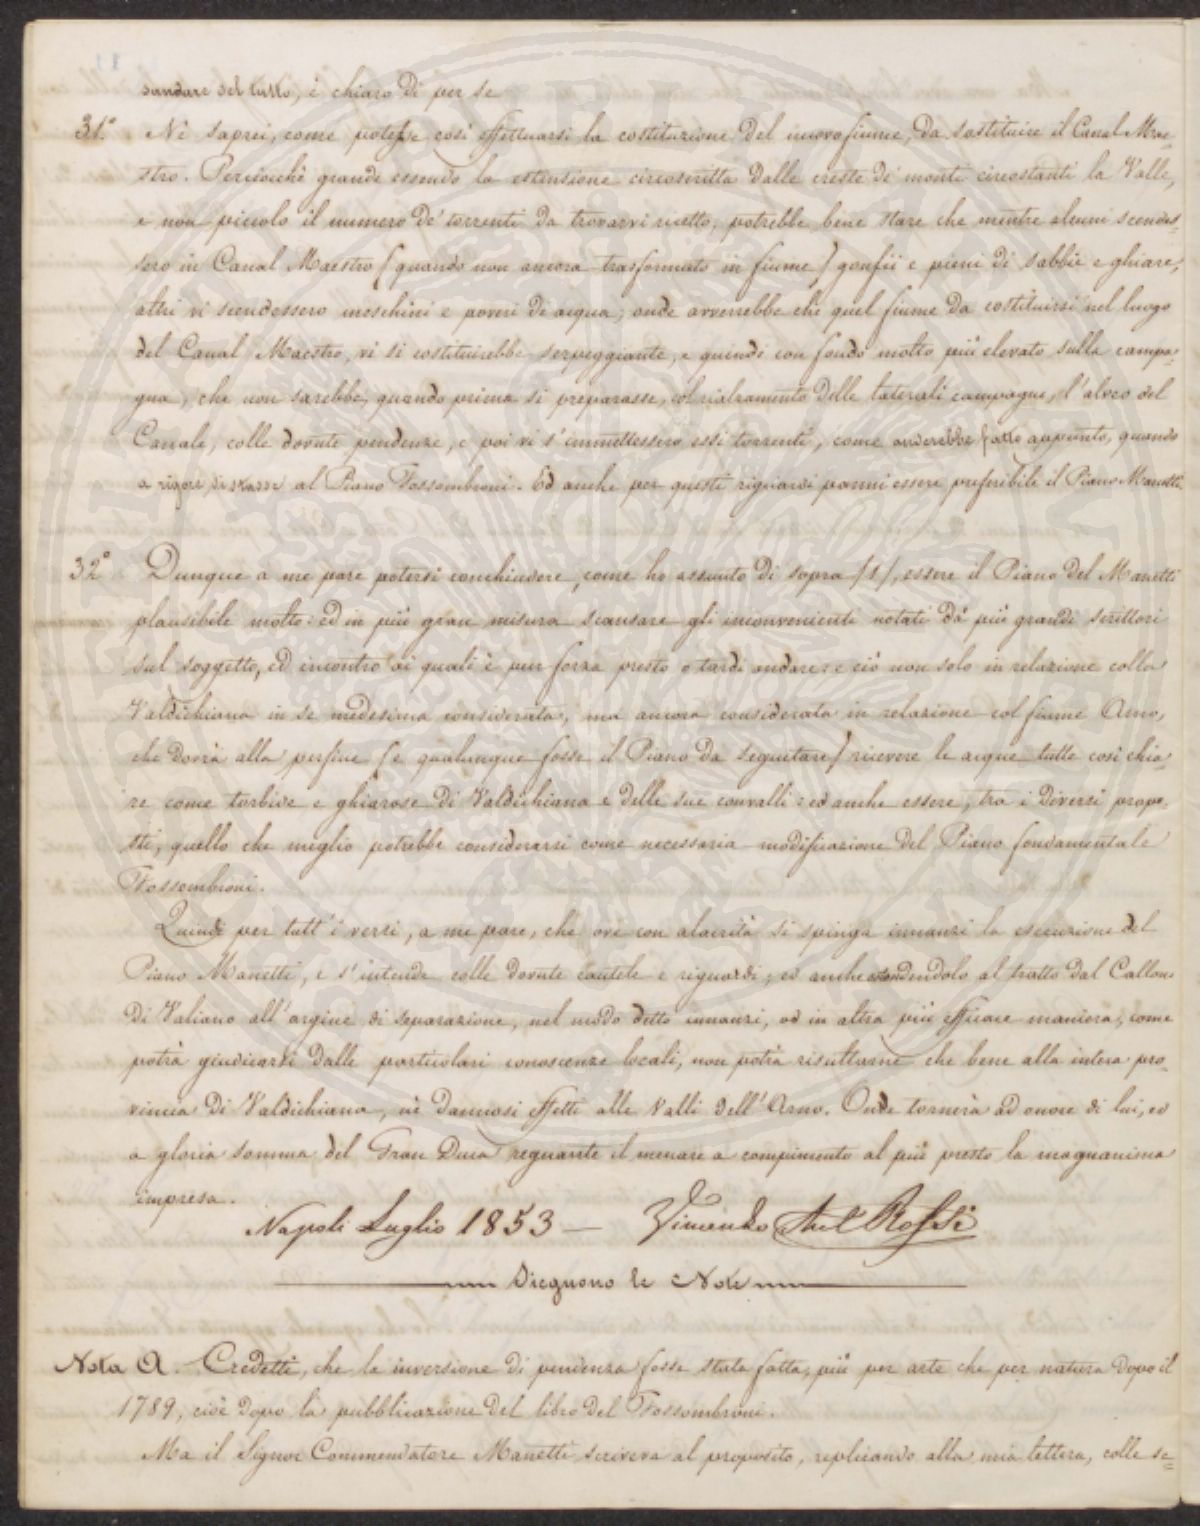 sandare del tutto, è chiaro di per se
31.° Nè saprei, come potesse così effettuarsi la costituzione del nuovo fiume, da sostituire il Canal Mae=
stro. Perciocchè grande essendo la estensione circoscritta dalle creste de' monti circostanti la Valle,
e non piccolo il numero de' torrenti da trovarvi ricetto, potrebbe bene stare che mentre alcuni scendes=
sero in Canal Maestro (quando non ancora trasformato in fiume) gonfii e pieni di sabbie e ghiare,
altri vi scendessero meschini e poveri di acqua; onde avverrebbe che quel fiume da costituirsi nel luogo
del Canal Maestro, vi si costituirebbe serpeggiante, e quindi con fondo molto più elevato sulla campa=
gna, che non sarebbe, quando prima si preparasse, col rialzamento delle laterali campagne, l'alveo del
Canale, colle dovute pendenze, e poi vi s'immettessero essi torrenti, come anderebbe fatto appunto, quando
a rigore si stasse al Piano Fossombroni. Ed anche per questi riguardi parmi essere preferibile il Piano Manetti.
32.° Dunque a me pare potersi conchiudere, come ho assunto di sopra (1), essere il Piano del Manetti
plausibile molto: ed in più gran misura scansare gli inconvenienti notati da' più grandi scrittori
sul soggetto, ed incontro ai quali è pur forza presto o tardi andare: e ciò non solo in relazione colla
Valdichiana in se medesima considerata, ma ancora considerata in relazione col fiume Arno,
che dovrà alla perfine (e qualunque fosse il Piano da seguitare) ricevere le acque tutte così chia=
re come torbide e ghiarose di Valdichiana e delle sue convalli: ed anche essere, tra i diversi propo=
sti, quello che meglio potrebbe considerarsi come necessaria modificazione del Piano fondamentale
Fossombroni.
Quindi per tutt'i versi, a me pare, che ove con alacrità si spinga innanzi la esecuzione del
Piano Manetti, e s'intende colle dovute cautele e riguardi, ed anche estendendolo al tratto dal Callone
di Valiano all'argine di separazione, nel modo detto innanzi, od in altra più efficace maniera, come
potrà giudicarsi dalle particolari conoscenze locali, non potrà risultarne che bene alla intera pro=
vincia di Valdichiana, nè dannosi effetti alle Valli dell'Arno. Onde tornerà ad onore di lui, ed
a gloria somma del Gran Duca regnante il menare a compimento al più presto la magnanima
impresa.
Napoli Luglio 1853 — Vincenzo Ant. Rossi
Sieguono le Note
Nota A. Credetti, che la inversione di pendenza fosse stata fatta, più per arte che per natura dopo il
1789, cioè dopo la pubblicazione del libro del Fossombroni.
Ma il Signor Commendatore Manetti scriveva al proposito, replicando alla mia lettera, colle se=